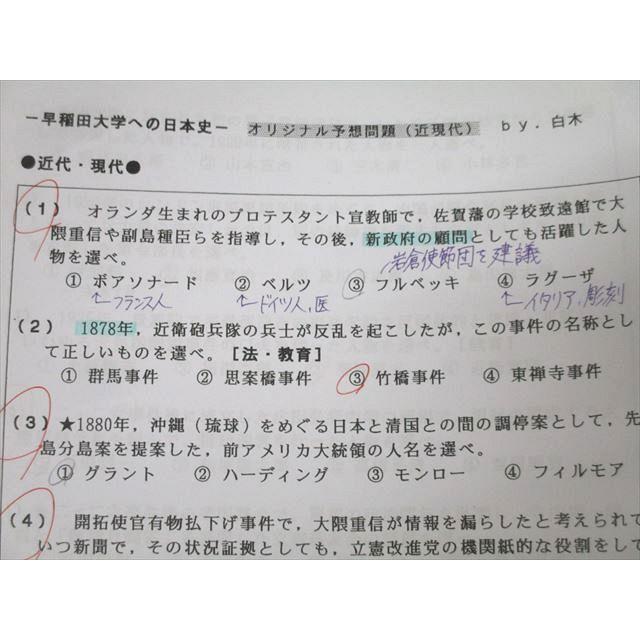 －早稲田大学への日本史－ オリジナル予想問題（近現代） by．白木
●近代・現代●
（1） オランダ生まれのプロテスタント宣教師で，佐賀藩の学校致遠館で大
隈重信や副島種臣らを指導し，その後，新政府の顧問としても活躍した人
物を選べ。
岩倉使節団を建議
① ボアソナード ② ベルツ ③ フルベッキ ④ ラグーザ
←フランス人 ←ドイツ人，医 ←イタリア，彫刻
（2） 1878年，近衛砲兵隊の兵士が反乱を起こしたが，この事件の名称とし
て正しいものを選べ。［法・教育］
① 群馬事件 ② 思案橋事件 ③ 竹橋事件 ④ 東禅寺事件
（3） ★1880年，沖縄（琉球）をめぐる日本と清国との間の調停案として，先
島分島案を提案した，前アメリカ大統領の人名を選べ。
① グラント ② ハーディング ③ モンロー ④ フィルモア
（4） 開拓使官有物払下げ事件で，大隈重信が情報を漏らしたと考えられて
いつ新聞で，その状況証拠としても，立憲改進党の機関紙的な役割をして